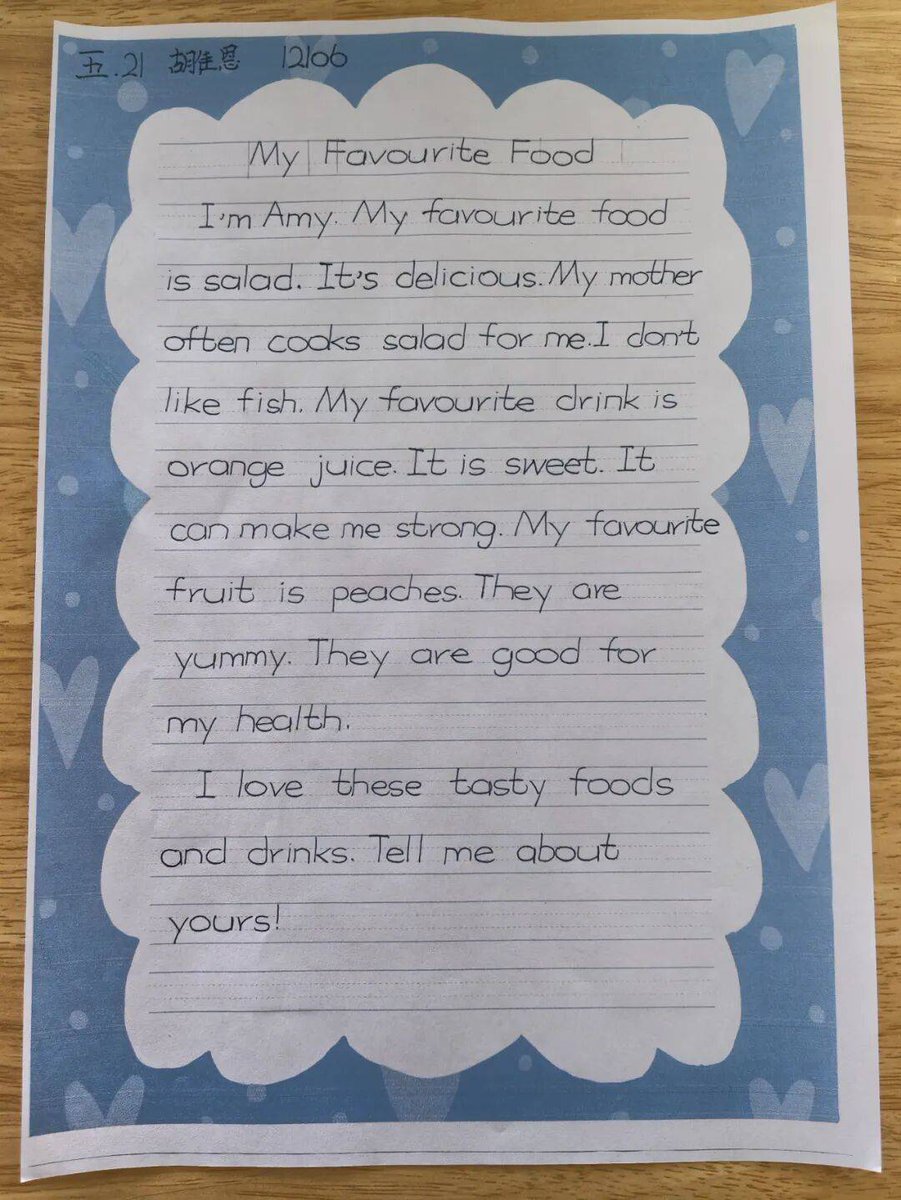 五.21 胡雅恩 12/06
My Favourite Food
I'm Amy. My favourite food
is salad. It's delicious. My mother
often cooks salad for me. I don't
like fish. My favourite drink is
orange juice. It is sweet. It
can make me strong. My favourite
fruit is peaches. They are
yummy. They are good for
my health.
I love these tasty foods
and drinks. Tell me about
yours!